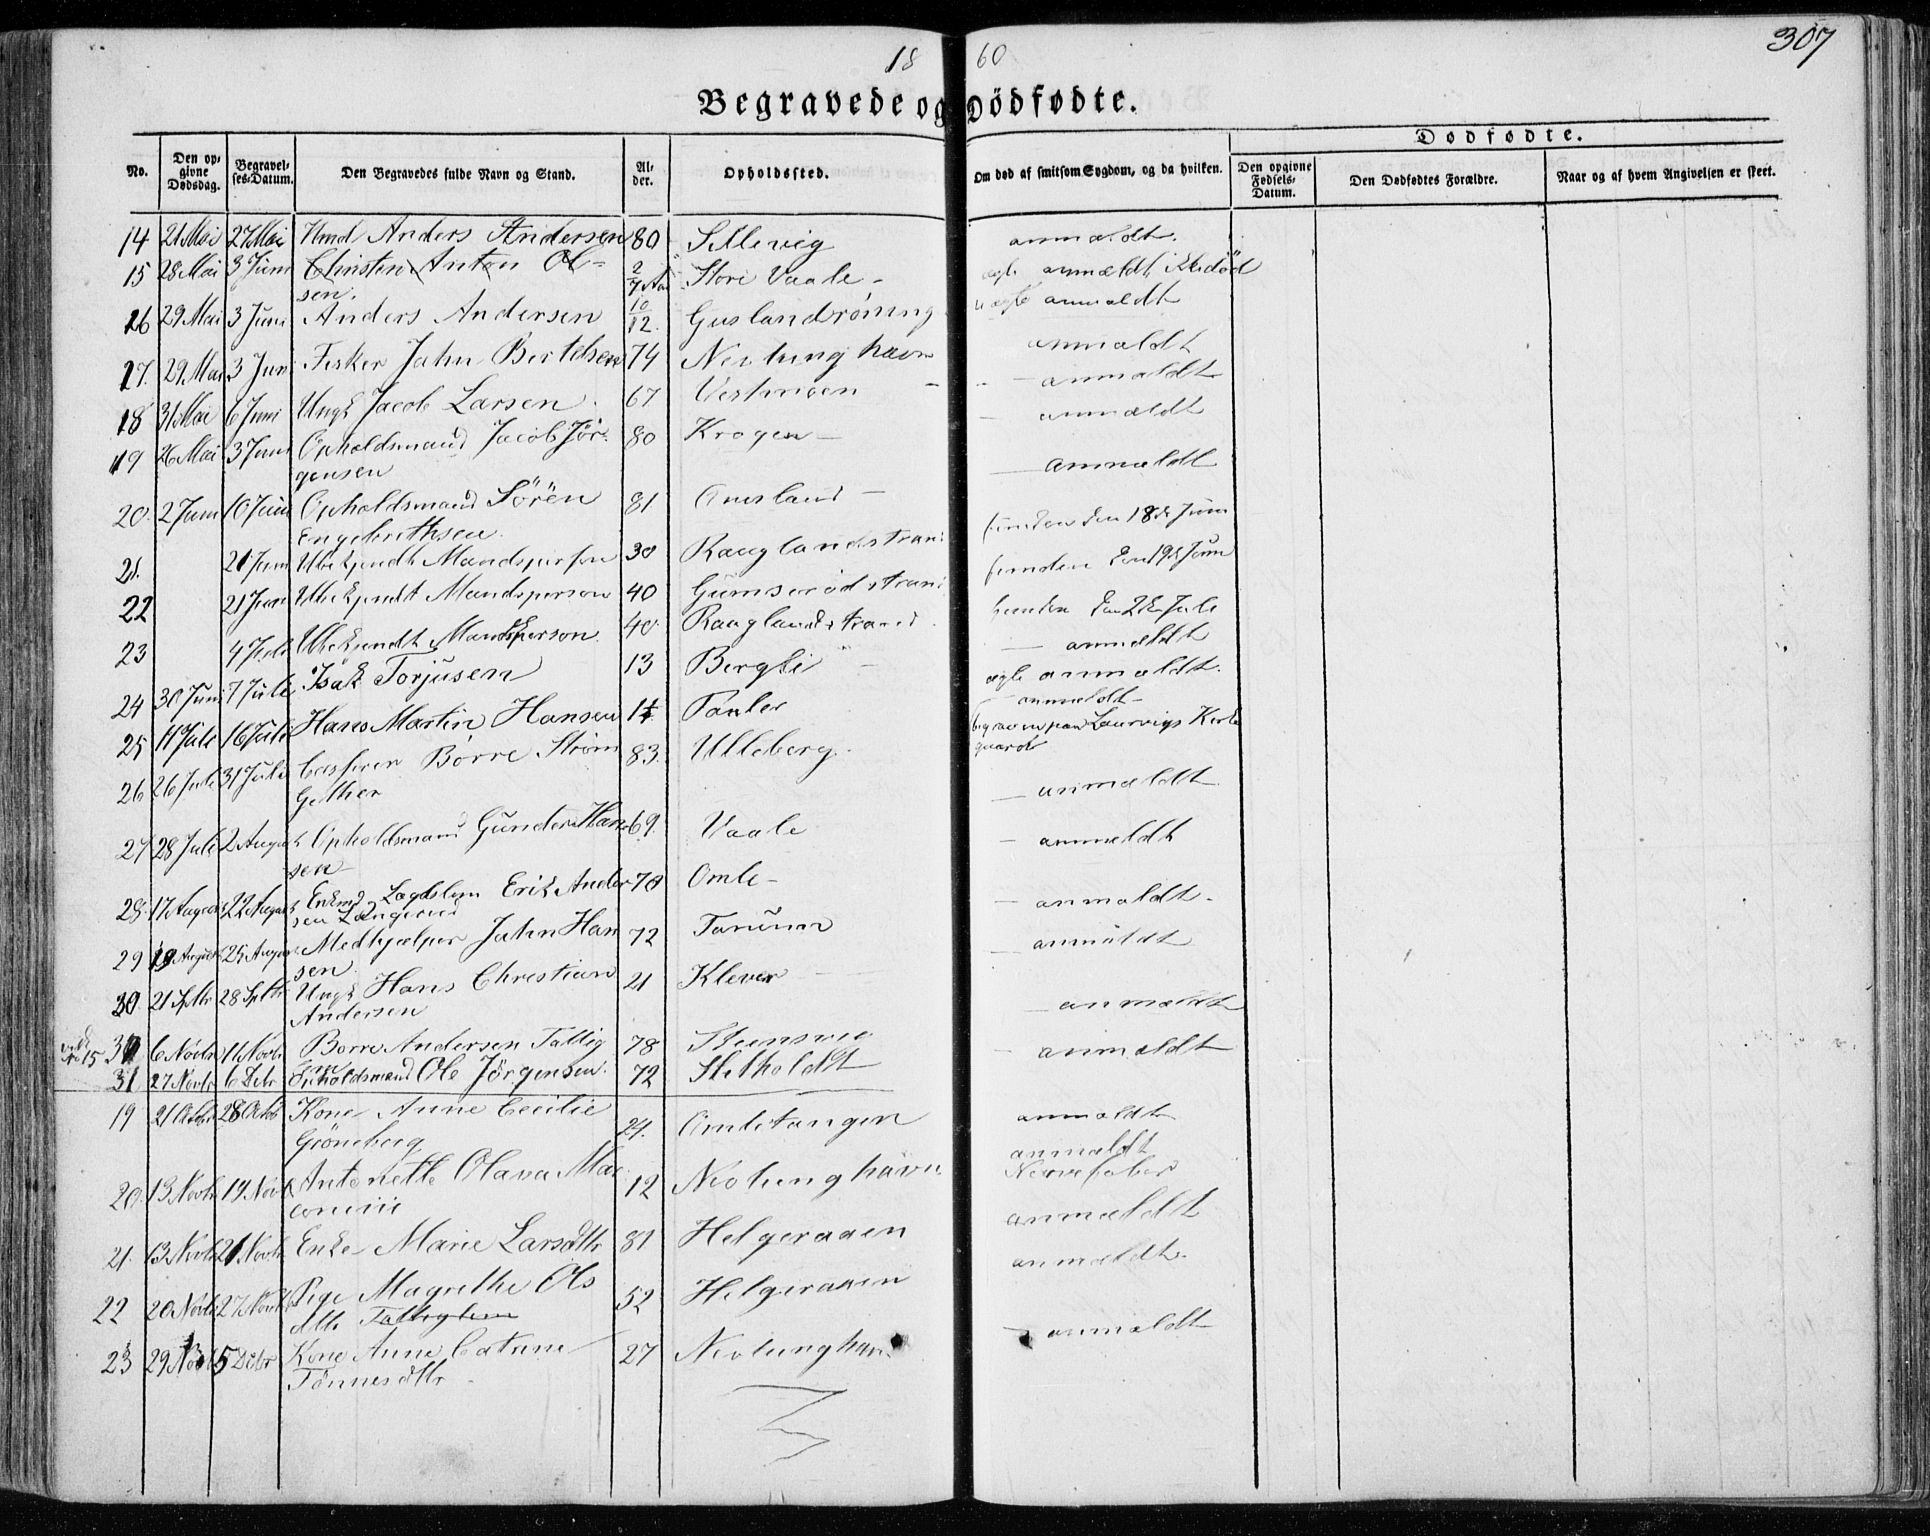 18 60
307
Begravede og Dødfødte.
Dødfødte.
No.
Den opgivne Dødsdag.
Begravelses-Datum.
Den Begravedes fulde Navn og Stand.
Alder.
Opholdssted.
Om død af smitsom Sygdom, og da hvilken.
Den opgivne Fødsels-Datum.
Den Dødfødtes Forældre.
Naar og af hvem Angivelsen er skeet.
14 21 Mai 27 Mai Anders Andersen 80 anmældt.
15 28 Mai 3 Juni Christen Anton Ol-
sen. Store Vaale anmældt
16 29 Mai 3 Juni Anders Andersen 10/12 anmældt
17. 29 Mai 3 Juni Fisker Jahn Bertelsen 74 Nevlunghavn anmældt
18 31 Mai 6 Juni Ungk Jacob Larsen 67 anmældt
19 26 Mai 3 Juni Opholdsmand Jacob Jør-
gensen 80 Krogen anmældt
20. 2 Juni 10 Juni Opholdsmand Sören
Engebrethsen 81 anmældt
21. 21 Juni Ubekjendt Mandsperson 30 Rauglandstrand funden den 18de Juni
22 21 Juni Ubekjendt Mandsperson 40 Gumserödstrand funden den 19de Juni
23 4 Juli Ubekjendt Mandsperson 40 Rauglandstrand funden den 2den Juli
24 30 Juni 7 Juli Isak Torjusen 13 Bergli anmældt
25 11 Juli 16 Juli Hans Martin Hansen anmældt.
26 26 Juli 31 Juli Børre Strøm
Gether 83. Ulleberg begraven paa Laurvigs Kirke
gaard
27 28 Juli 2 August Opholdsmand Gunder Han
sen 69. Vaale anmældt
28. 17 August 22 August Enkemd Lægdslem Erik Ander
sen 70 Omle anmældt
29 19 August 25 August Medhjælper Jahn Han
sen 72 anmældt.
30. 21 Septbr 28 Septbr Ungk Hans Christian
Andersen 21 Klever anmældt
vide No 15
6 Novbr 11 Novbr Børre Andersen Fattig
lem 78 Steensvig anmældt
31 27 Novbr 6 Debr Opholdsmand Ole Jörgensen 72 anmældt
19 21 Octbr 28 Octb Kone Anne Cecilie
Gröneberg 24. Omletangen anmældt
20. 13 Novbr 19 Novbr Antonette Olava 12 Nevlunghavn anmældt
Nervefeber
21. 13 Novbr 21 Novbr Enke Marie Larsdttr 81 Helgeraaen anmældt
22 20 Novbr 27 Novbr Pige Magrethe Ols
dttr Fattiglem 52 Helgeraaen anmældt.
23 29 Novbr 5 Debr Kone Anne Catrine
Tönnesdttr 27 Nevlunghavn anmældt